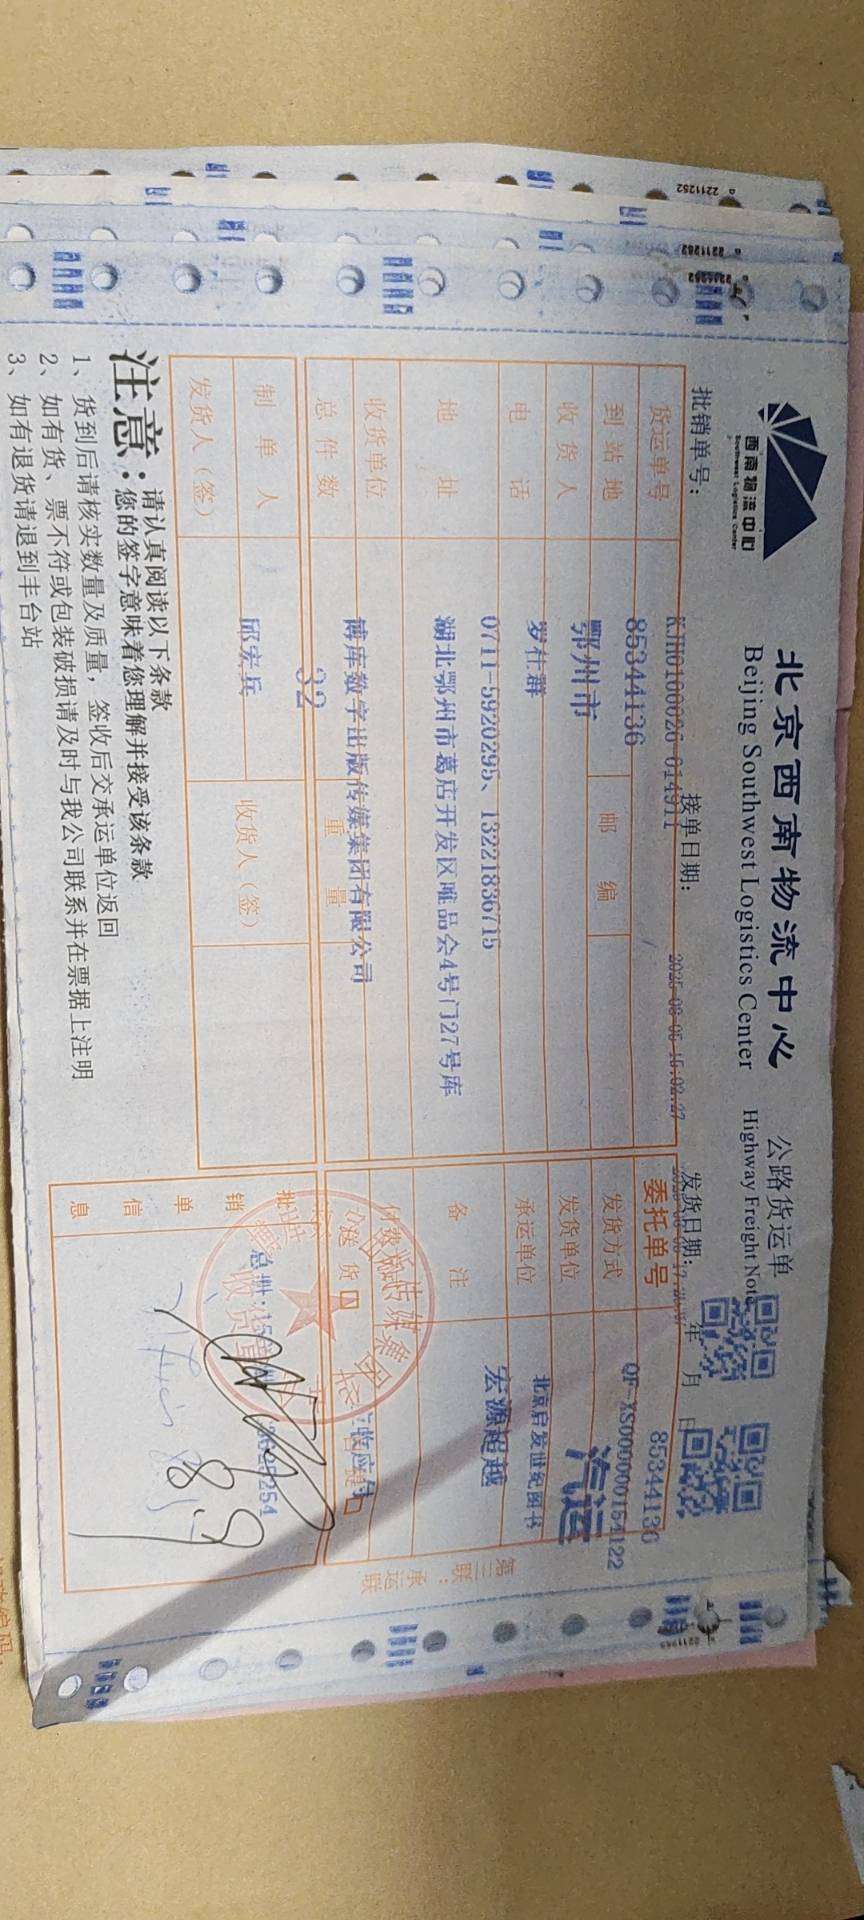 西南物流中心
Southwest Logistics Center
北京西南物流中心
Beijing Southwest Logistics Center
公路货运单
Highway Freight Note
批销单号：
KJH0100026-014911
接单日期：
2025-08-06 15:02:27
发货日期：
年 月 日
货运单号
85344136
委托单号
85344136
QF-XS000000154122
到站地
鄂州市
邮编
发货方式
汽运
收货人
罗杜群
发货单位
北京启发世纪图书
电话
0711-5920295、13221836715
承运单位
宏源超越
地址
湖北鄂州市葛店开发区唯品会4号门27号库
备注
收货单位
博库数字出版传媒集团有限公司
总件数
32
重量
送货
制单人
邱宏兵
收货人（签）
发货人（签）
批销单信息
8.9
第三联：承运联
注意：
请认真阅读以下条款
您的签字意味着您理解并接受该条款
1、货到后请核实数量及质量，签收后交承运单位返回
2、如有货、票不符或包装破损请及时与我公司联系并在票据上注明
3、如有退货请退到丰台站
2211252
2211252
2211252